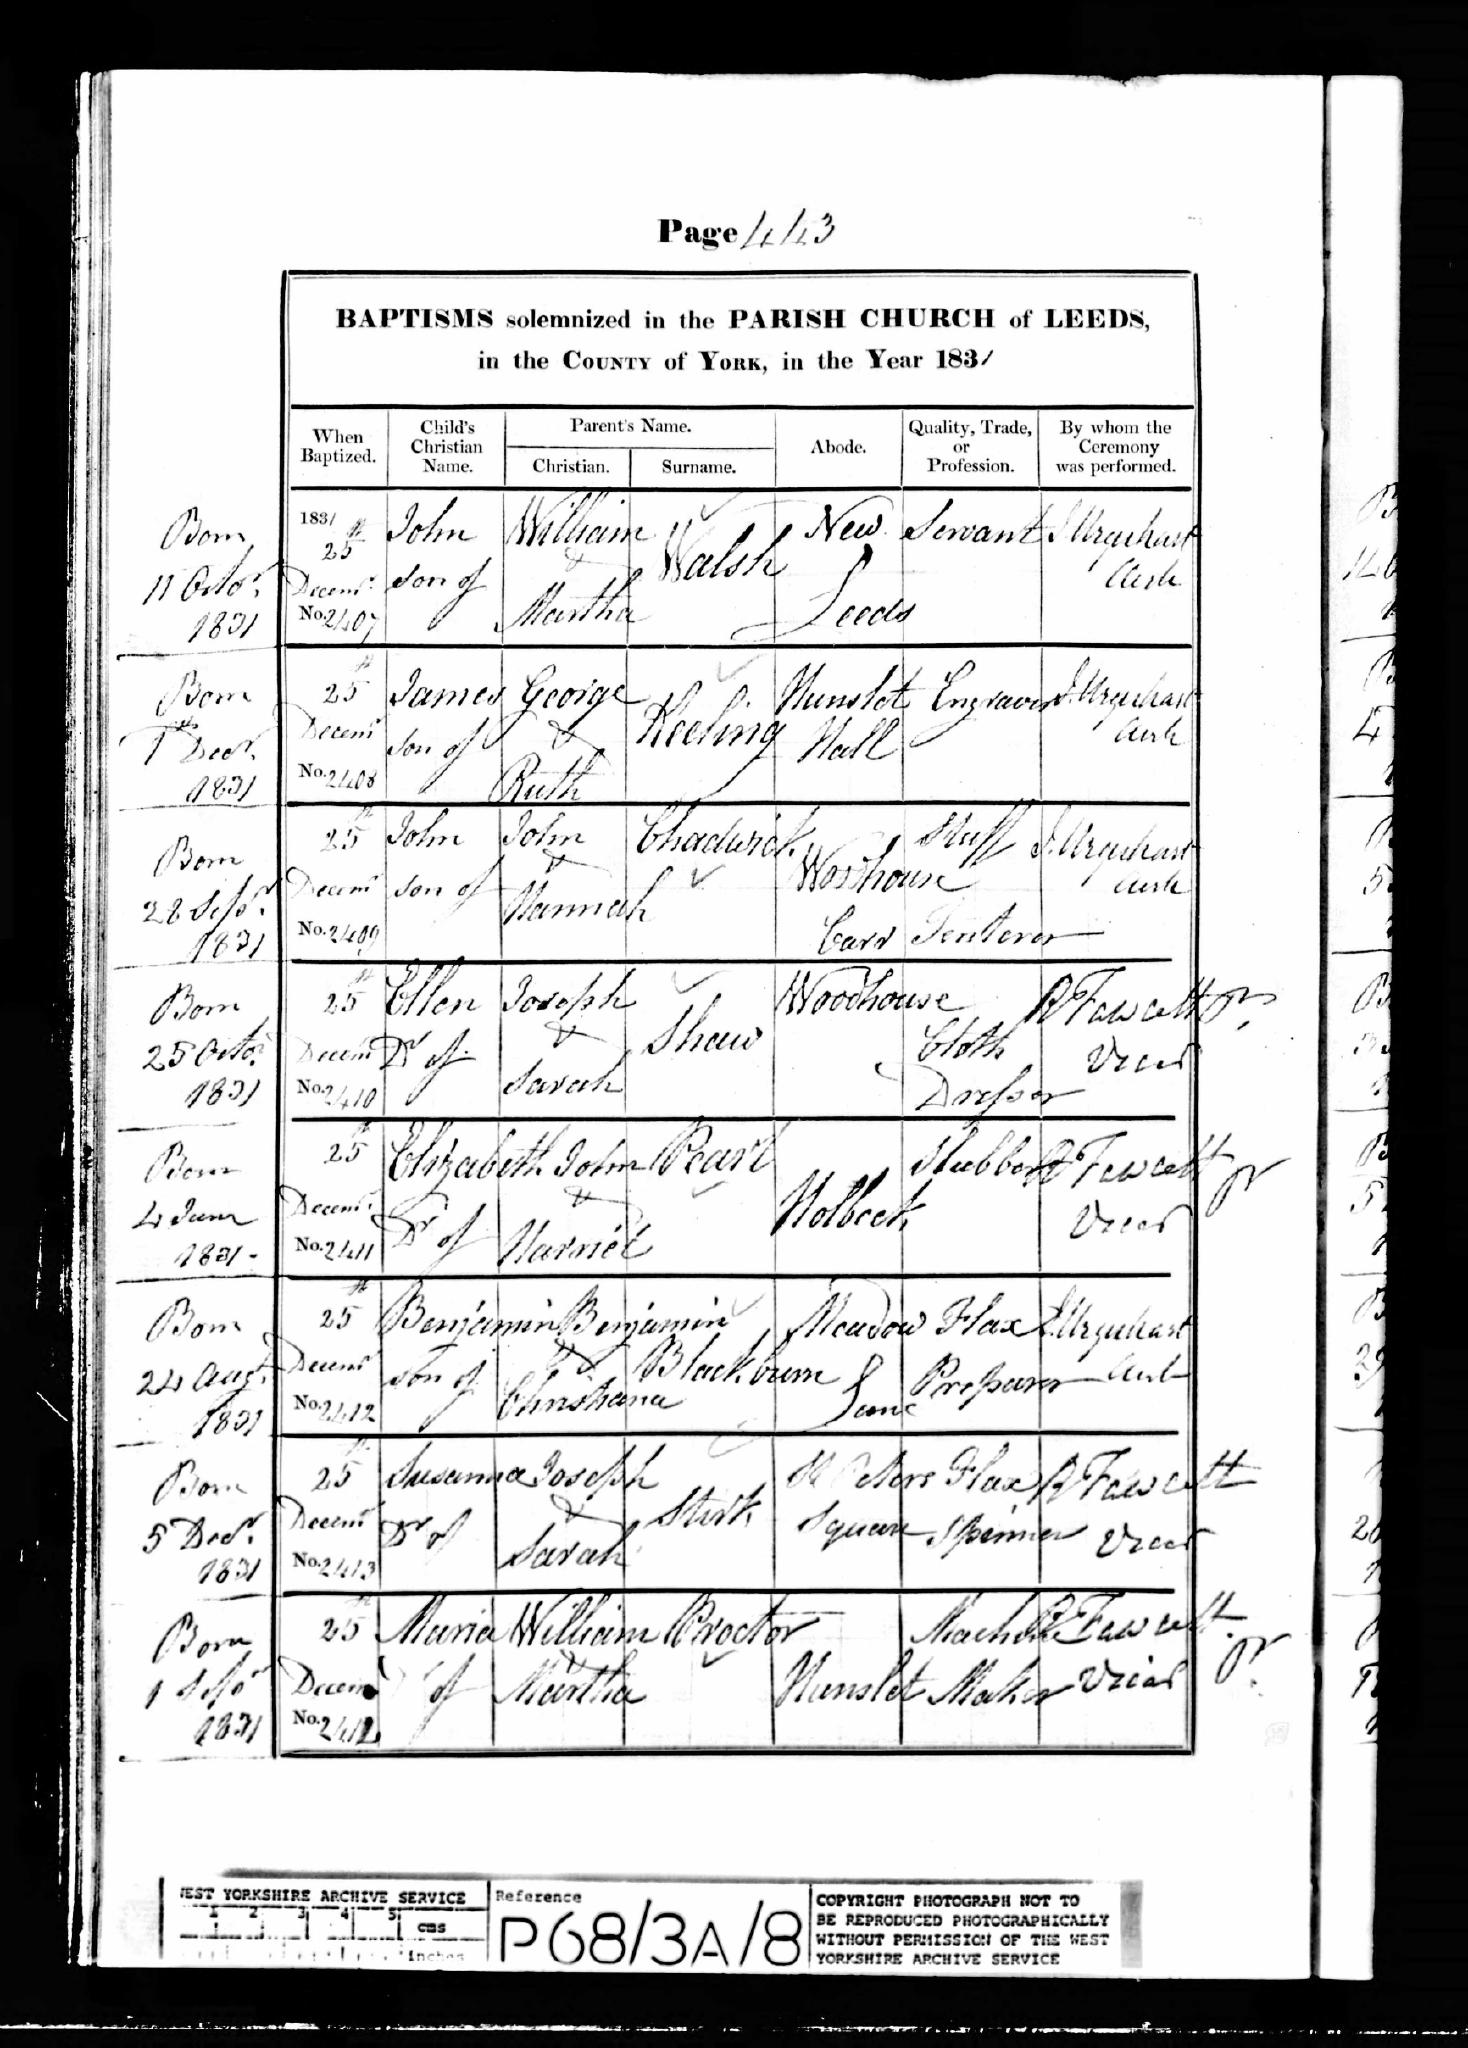 Page 443
BAPTISMS solemnized in the PARISH CHURCH of LEEDS,
in the COUNTY of YORK, in the Year 1831
When Baptized.
Child's Christian Name.
Parent's Name.
Christian.
Surname.
Abode.
Quality, Trade, or Profession.
By whom the Ceremony was performed.
Born 11 Octor. 1831
1831 25th Decemr. No. 2407
John son of
William & Martha
Walsh
New Leeds
Servant
J. Urquhart Clerk
Born 1st Decr. 1831
25th Decemr No. 2408
James son of
George & Ruth
Keeling
Hunslet Hall
Engraver
J. Urquhart Clerk
Born 28 Sepr. 1831
25th Decemr No. 2409
John son of
John & Hannah
Chadwick
Woodhouse Carr
Stuff Tenterer
J. Urquhart Clerk
Born 25 Octor. 1831
25th Decemr No. 2410
Ellen Dr of
Joseph & Sarah
Shaw
Woodhouse
Cloth Dresser
R Fawcett Vicar
Born 4 June 1831
25th Decemr. No. 2411
Elizabeth Dr of
John & Harriet
Pearl
Holbeck
R Fawcett Vicar
Born 24 Augt. 1831
25th Decemr No. 2412
Benjamin son of
Benjamin & Christiana
Blackburn
Meadow Lane
Flax Preparer
J. Urquhart Clerk
Born 5 Decr. 1831
25th Decemr No. 2413
Susanna Dr of
Joseph & Sarah
Stirk
St Peters Square
Flax Spinner
R Fawcett Vicar
Born 1 Sepr 1831
25th Decemr No.
Maria Dr of
William & Martha
Proctor
Hunslet
Machine Maker
R Fawcett Vicar
WEST YORKSHIRE ARCHIVE SERVICE
1 2 3 4 5 cms
inches
Reference
P68/3A/8
COPYRIGHT PHOTOGRAPH NOT TO
BE REPRODUCED PHOTOGRAPHICALLY
WITHOUT PERMISSION OF THE WEST
YORKSHIRE ARCHIVE SERVICE